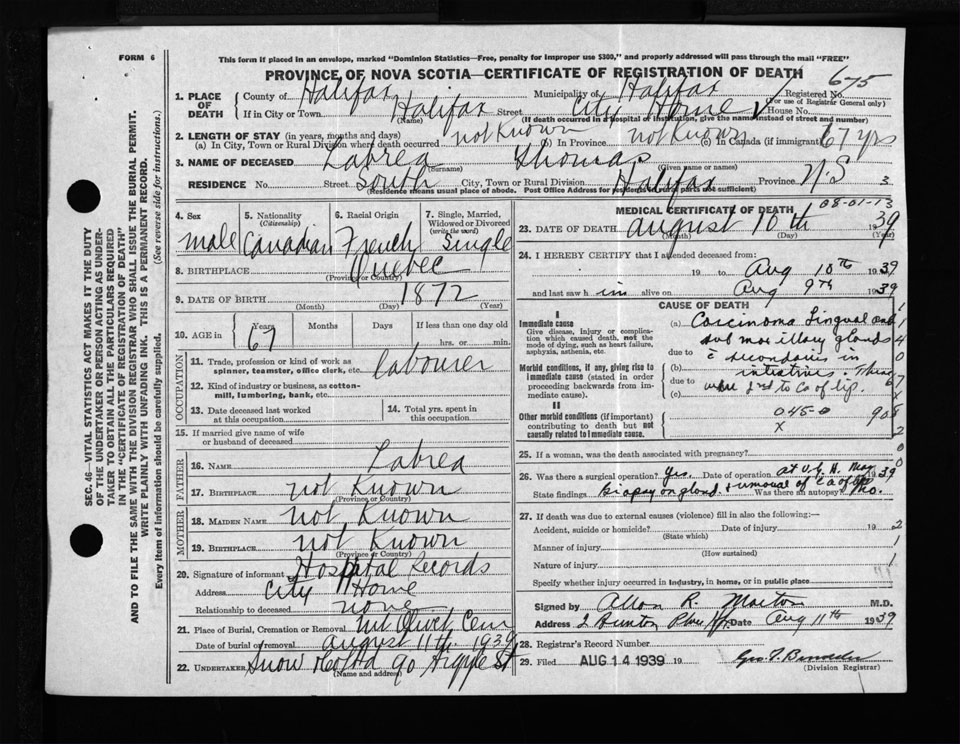 FORM 6
This form if placed in an envelope, marked "Dominion Statistics—Free, penalty for improper use $300," and properly addressed will pass through the mail "FREE"
PROVINCE OF NOVA SCOTIA—CERTIFICATE OF REGISTRATION OF DEATH 675
1. PLACE OF DEATH
County of Halifax Municipality of Halifax Registered No.
(For use of Registrar General only)
If in City or Town Halifax Street City Home House No.
(Name) (If death occurred in a hospital or institution, give the name instead of street and number)
2. LENGTH OF STAY (in years, months and days)
(a) In City, Town or Rural Division where death occurred not Known (b) In Province not Known (c) In Canada (if immigrant) 67 yrs
3. NAME OF DECEASED Labrea Thomas
(Surname) (Given name or names)
RESIDENCE No. Street South City, Town or Rural Division Halifax Province N.S 3
(Residence means usual place of abode. Post Office Address for residents in rural parts not sufficient)
SEC. 46—VITAL STATISTICS ACT MAKES IT THE DUTY
OF THE UNDERTAKER OR PERSON ACTING AS UNDER-
TAKER TO OBTAIN ALL THE PARTICULARS REQUIRED
IN THE "CERTIFICATE OF REGISTRATION OF DEATH"
AND TO FILE THE SAME WITH THE DIVISION REGISTRAR WHO SHALL ISSUE THE BURIAL PERMIT.
WRITE PLAINLY WITH UNFADING INK. THIS IS A PERMANENT RECORD.
Every item of information should be carefully supplied. (See reverse side for instructions.)
4. Sex
male
5. Nationality
(Citizenship)
Canadian
6. Racial Origin
French
7. Single, Married,
Widowed or Divorced
(write the word)
Single
8. BIRTHPLACE Quebec
(Province or Country)
9. DATE OF BIRTH 1872
(Month) (Day) (Year)
10. AGE in Years Months Days If less than one day old
67 hrs. or min.
OCCUPATION
11. Trade, profession or kind of work as
spinner, teamster, office clerk, etc. labourer
12. Kind of industry or business, as cotton-
mill, lumbering, bank, etc.
13. Date deceased last worked
at this occupation
14. Total yrs. spent in
this occupation
15. If married give name of wife
or husband of deceased
FATHER
16. NAME Labrea
17. BIRTHPLACE not Known
(Province or Country)
MOTHER
18. MAIDEN NAME not Known
19. BIRTHPLACE not Known
(Province or Country)
20. Signature of informant Hospital Records
Address City Home
Relationship to deceased none
21. Place of Burial, Cremation or Removal Mt Olivet Cem
Date of burial or removal August 11th 1939
22. UNDERTAKER Snow 90 Argyle St
(Name and address)
MEDICAL CERTIFICATE OF DEATH 08-01-13
23. DATE OF DEATH August 10th 1939
(Month) (Day) (Year)
24. I HEREBY CERTIFY that I attended deceased from:
19 to Aug 10th 1939
and last saw h im alive on Aug 9th 1939
CAUSE OF DEATH
I
Immediate cause
Give disease, injury or complica-
tion which caused death, not the
mode of dying, such as heart failure,
asphyxia, asthenia, etc.
Morbid conditions, if any, giving rise to
immediate cause (stated in order
proceeding backwards from im-
mediate cause).
II
Other morbid conditions (if important)
contributing to death but not
causally related to immediate cause.
(a) Carcinoma Lingual and
sub maxillary glands
due to c̄ secondaries in
(b) intestines. These
due to were 2nd to Ca of lip.
(c)
045-0 908
X
25. If a woman, was the death associated with pregnancy?
26. Was there a surgical operation? Yes. Date of operation at V.G.H. May 1939
State findings biopsy on gland. & removal of Ca of lip Was there an autopsy? No.
27. If death was due to external causes (violence) fill in also the following:—
Accident, suicide or homicide? Date of injury 19
(State which)
Manner of injury
(How sustained)
Nature of injury
Specify whether injury occurred in industry, in home, or in public place
Signed by Allan R. Morton M.D.
Address Date Aug 11th 1939
28. Registrar's Record Number
29. Filed AUG 14 1939 19
(Division Registrar)